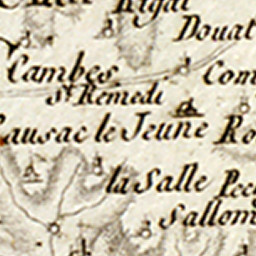 Rigal
Douat
Cambes
Com
St Remedi
Causac le Jeune
Ro
la Salle
Pech
Sallom